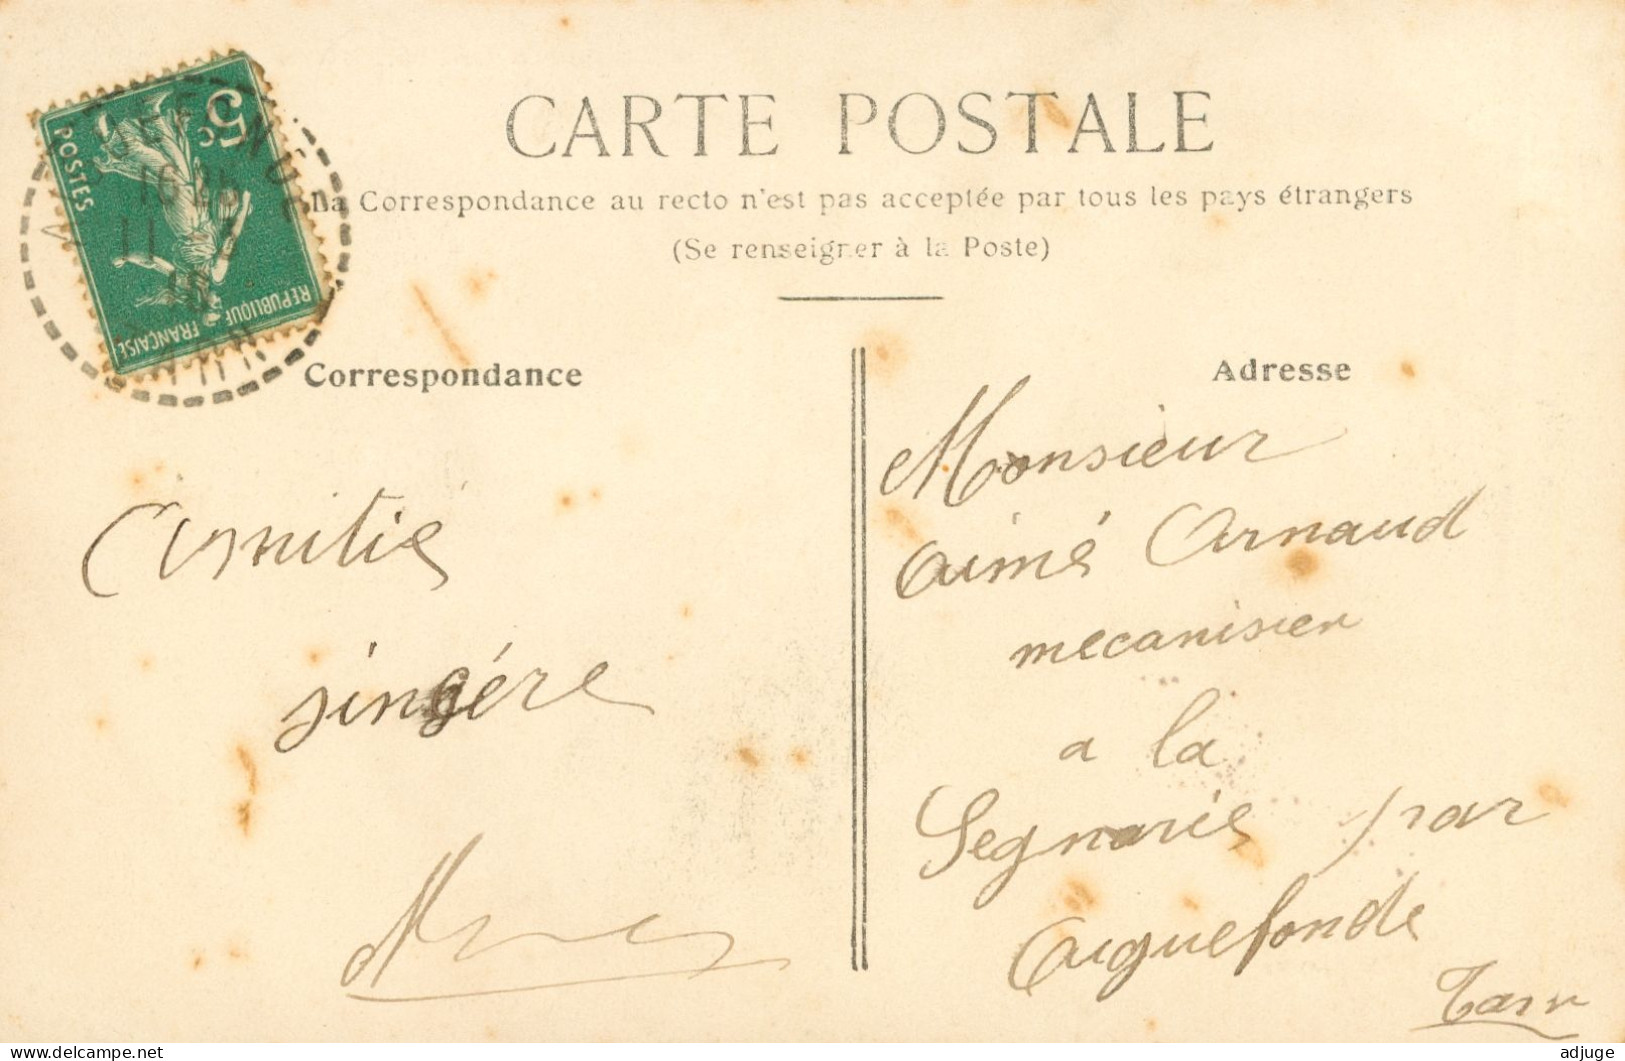 5c
POSTES
REPUBLIQUE FRANÇAISE
16 25
11
CARTE POSTALE
La Correspondance au recto n'est pas acceptée par tous les pays étrangers
(Se renseigner à la Poste)
Correspondance
Amitié
singére
Adresse
Monsieur
Aimé Arnaud
mecanisien
a la
Segnarié par
Aiguefonde
Tarn
adjuge.com